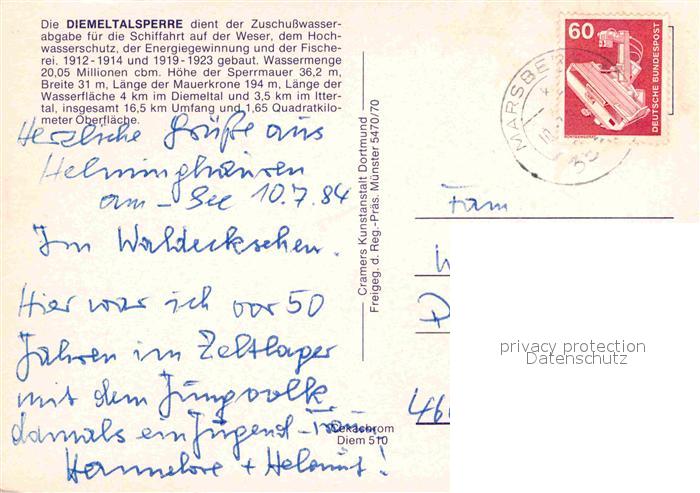 Die DIEMELTALSPERRE dient der Zuschußwasser-
abgabe für die Schiffahrt auf der Weser, dem Hoch-
wasserschutz, der Energiegewinnung und der Fische-
rei. 1912-1914 und 1919-1923 gebaut. Wassermenge
20,05 Millionen cbm. Höhe der Sperrmauer 36,2 m,
Breite 31 m, Länge der Mauerkrone 194 m, Länge der
Wasserfläche 4 km im Diemeltal und 3,5 km im Itter-
tal, insgesamt 16,5 km Umfang und 1,65 Quadratkilo-
meter Oberfläche.
Herzliche Grüße aus
Helminghausen
am - See 10.7.84
Im Waldeckschen.
Hier war ich vor 50
Jahren im Zeltlager
mit dem Jungvolk
damals ein Jugend-Traum.
Hannelore + Helmut!
Cekachrom
Diem 510
Cramers Kunstanstalt Dortmund
Freigeg. d. Reg.-Präs. Münster 5470/70
60
DEUTSCHE BUNDESPOST
MARSBE
Fam
privacy protection
Datenschutz
46